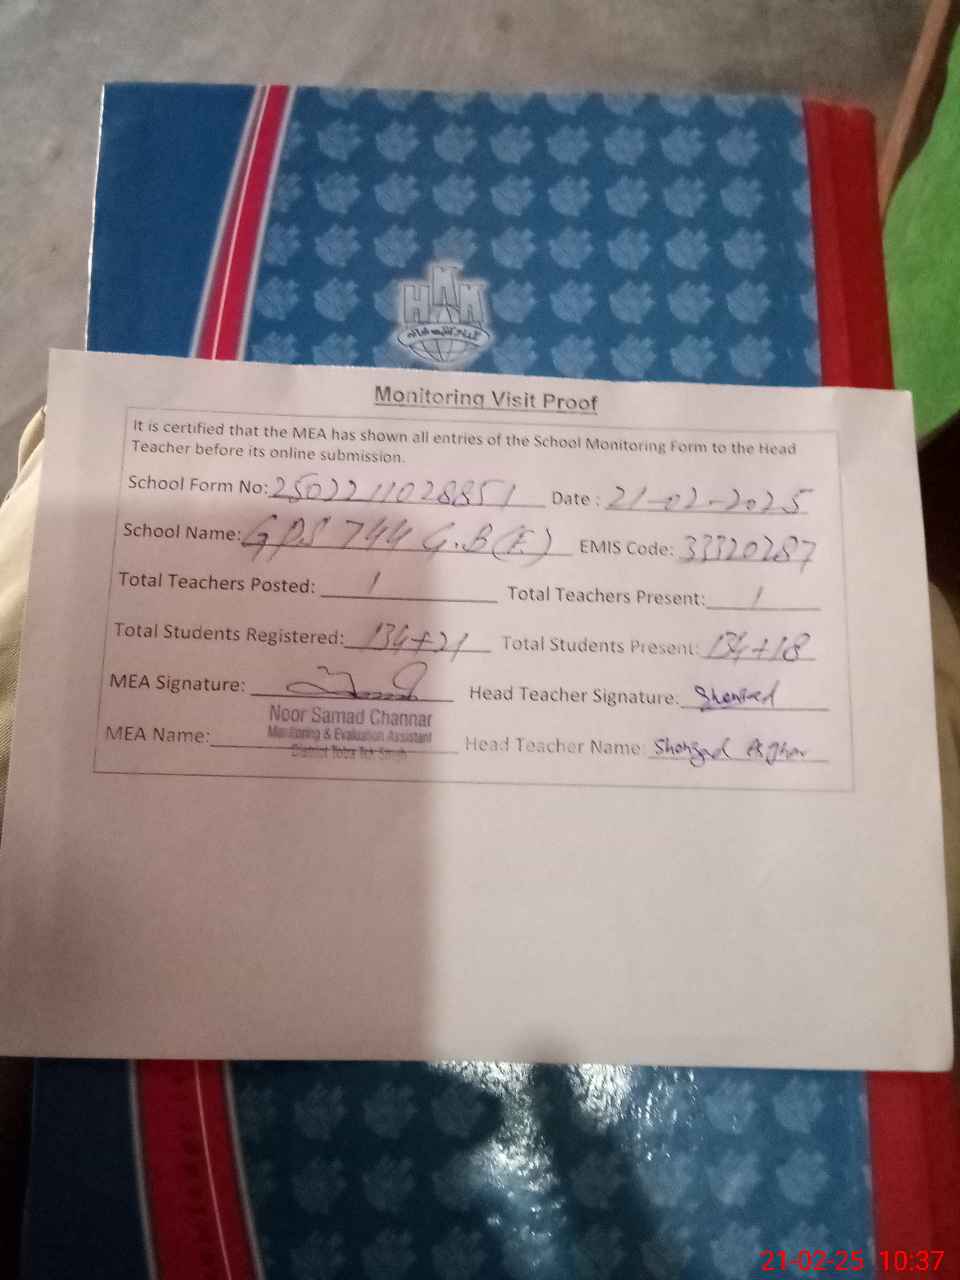 HMM
Monitoring Visit Proof
It is certified that the MEA has shown all entries of the School Monitoring Form to the Head
Teacher before its online submission.
School Form No: 2502211028851 Date : 21-02-2025
School Name: GPS 744 G.B(E) EMIS Code: 33320287
Total Teachers Posted: 1 Total Teachers Present: 1
Total Students Registered: 134+21 Total Students Present: 134+18
MEA Signature: Head Teacher Signature: Shahzad
Noor Samad Channar
Monitoring & Evaluation Assistant
District Toba Tek Singh
MEA Name: Head Teacher Name: Shahzad Asghar
21-02-25 10:37